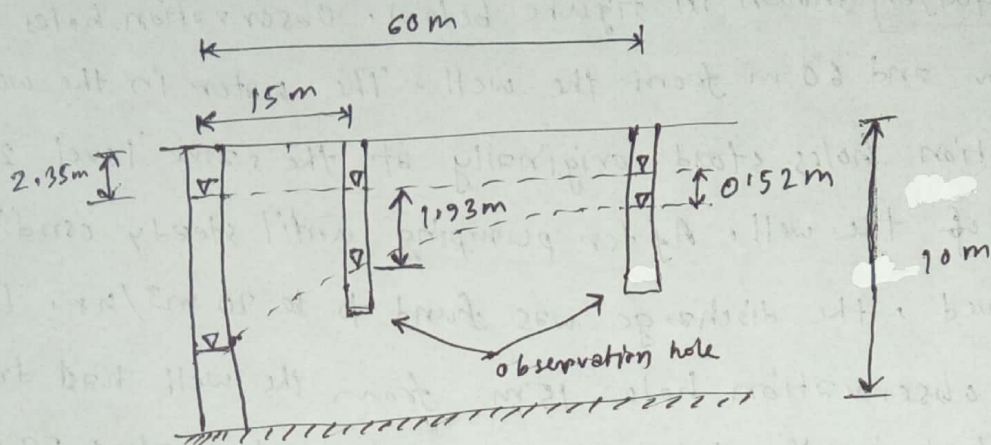 60 m
15 m
2.35m
1.93m
0.52 m
10 m
observation hole